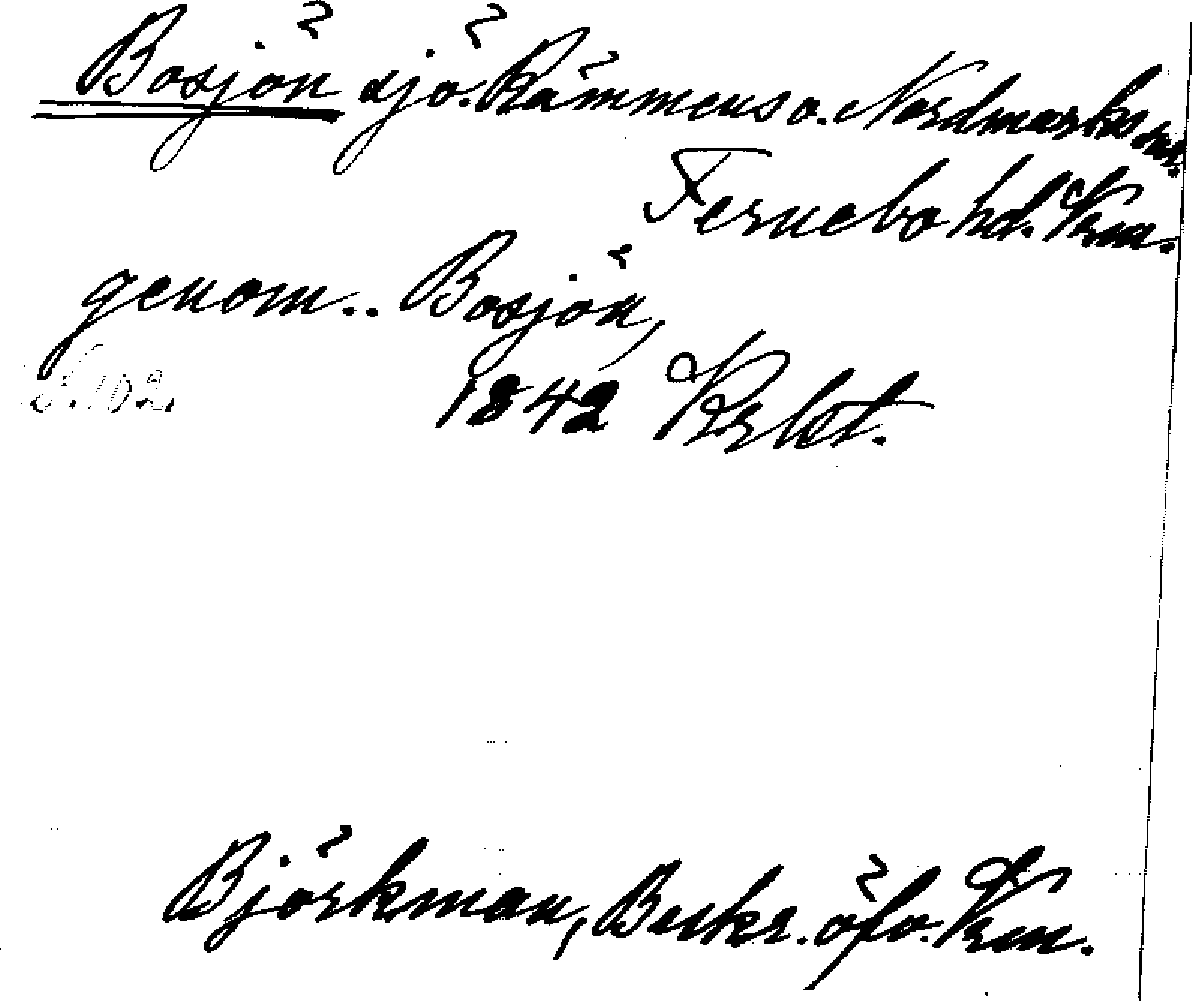 Bosjön sjö. Rämmens o. Nordmarks snr.
Fernebo hd. Vrm.
genom.. Bosjön,
s. 102. 1842 Krlst.
Björkman, Beskr. öfv. Vrm.